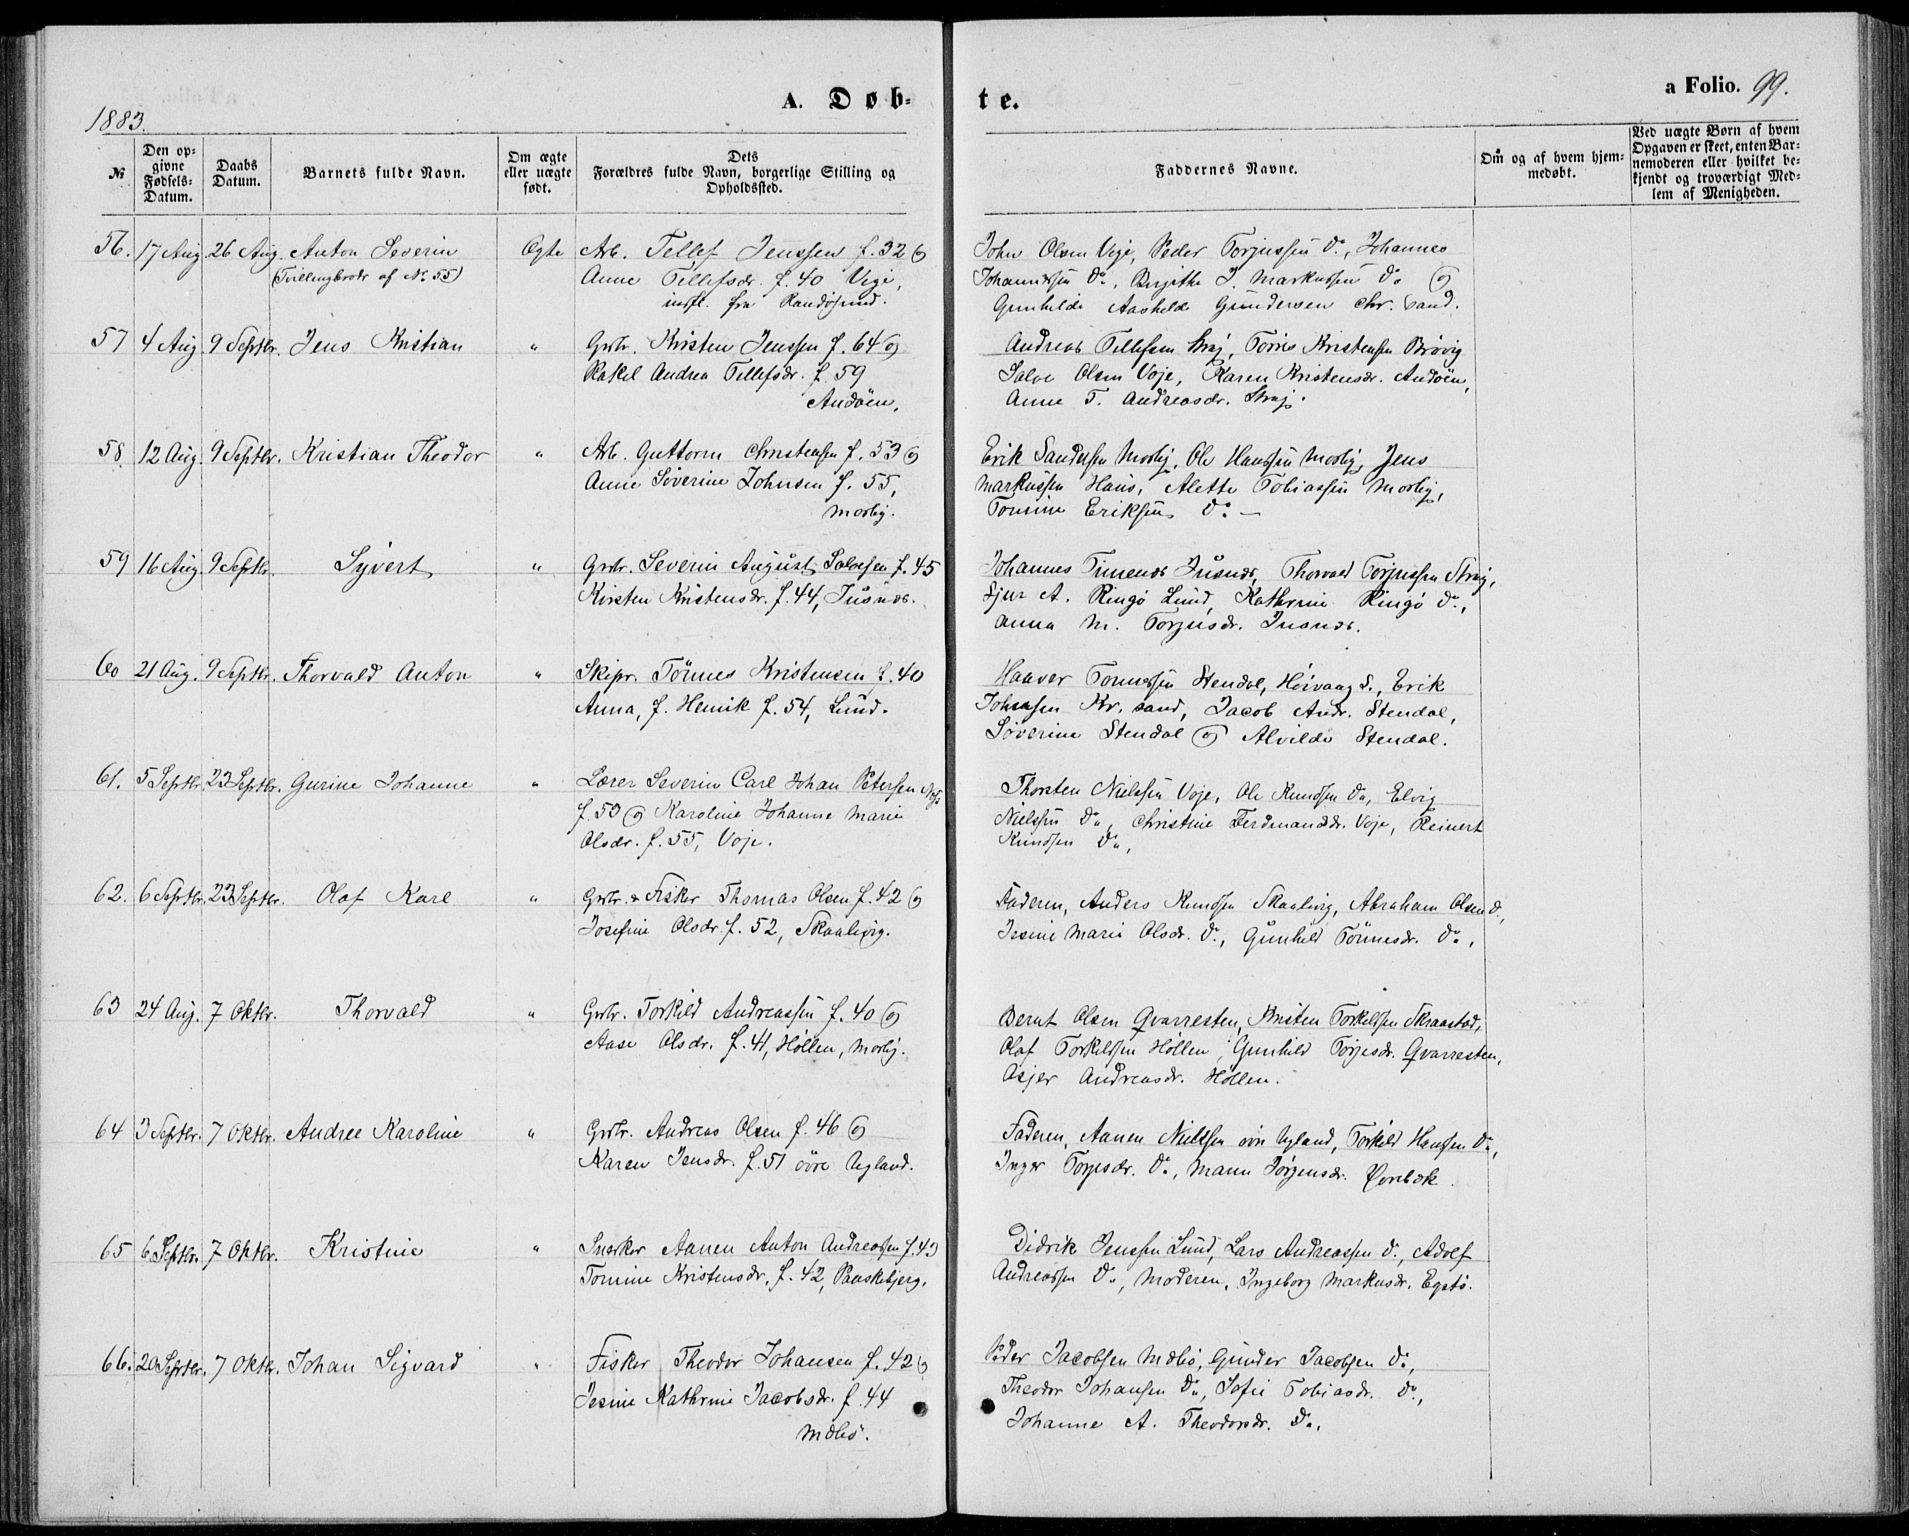 1883.
A. Døb-
te.
a Folio. 99.
№
Den op-
givne
Fødsels-
Datum.
Daabs
Datum.
Barnets fulde Navn.
Om ægte
eller uægte
født.
Dets
Forældres fulde Navn, borgerlige Stilling og
Opholdssted.
Faddernes Navne.
Om og af hvem hjem-
medøbt.
Ved uægte Børn af hvem
Opgaven er skeet, enten Bar-
nemoderen eller hvilket be-
kjendt og troværdigt Med-
lem af Menigheden.
56. 17 Aug 26 Aug. Anton Severin Ægte Arb. Tellef Jenssen f. 32 og
(Tvillingbrodr af No. 55) Anne Tellefsdr. f. 40 Vige,
indfl. fra Randøsund.
John Olsen Voje, Peder Torjussen Do., Johannes
Johannessen Do, Birgithe J. Markussen Do og
Gunhilde Aashilde Gundersen Chr. sand.
57 4 Aug 9 Septbr. Jens Kristian " Grbr. Kristen Jenssen f. 64 og
Rakel Andrea Tellefsdr. f. 59
Andøen.
Andreas Tellefsen Straj, Tørres Kristensen Brøvig
Salve Olsen Voje, Karen Kristensdr. Andøen,
Anne T. Andreasdr. Straj.
58. 12 Aug. 9 Septbr. Kristian Theodor " Arb. Guttorm Christensen f. 53 og
Anne Søverine Johnsen f. 55,
Moslej.
Erik Sandersen Moslej, Ole Hanssen Moslej, Jens
Markussen Haus, Alette Tobiassen Moslej,
Tomine Eriksen Do. —
59 16 Aug. 9 Septbr. Syvert " Grbr. Severin August Salvesen f. 45
Kirsten Kristensdr. f. 44, Jusnes.
Johannes Timenes Jusnes, Thorvald Torjussen Straj,
Sjur A. Ringø Lund, Kathrine Ringø Do.,
Anna M. Torjusdr. Jusnes.
60 21 Aug. 9 Septbr. Thorvald Anton " Skipr. Tönnes Kristensen f. 40
Anna, f. Henrik f. 54, Lund.
Haaver Tønnessen Stendal, Høivaag S., Erik
Johnsen Kr. sand, Jacob Andr. Stendal,
Søverine Stendal og Alvilde Stendal.
61. 5 Septbr. 23 Septbr. Gurine Johanne " Lærer Severin Carl Johan Petersen
f. 53 og Karoline Johanne Marie
Olsdr. f. 55, Voje.
Thorsten Nielsen Voje, Ole Knudsen Do, Elvig
Nielsen Do, Christine Ferdinandsdr. Voje, Reinert
Knudsen Do,
62. 6 Septbr. 23 Septbr. Olaf Karl " Grbr. & Fisker Thomas Olsen f. 42 og
Josefine Olsdr. f. 52, Skaalevig.
Faderen, Anders Knudsen Skaalevig, Abraham Olsen Do,
Jesine Marie Olsdr. Do, Gunhild Tönnesdr. Do,
63 24 Aug. 7 Oktbr. Thorvald " Grbr. Torkild Andreassen f. 40 og
Aase Olsdr. f. 41, Höllen, Moslej.
Bernt Olsen Qvarresten, Kristen Torkelsen Skraastad,
Olaf Torkelsen Höllen, Gunhild Torjesdr. Qvarresten,
Asjer Andreasdr. Höllen.
64 3 Septbr. 7 Oktbr. Andree Karoline " Grbr. Andreas Olsen f. 46 og
Karen Jensdr. f. 51 övre Ugland.
Faderen, Aanen Nielsen övre Ugland, Torkild Hansen Do,
Inger Torjesdr. Do, Maren Jörgensdr. Øvrebæk.
65 6 Septbr. 7 Oktbr. Kristine " Snerker Aanen Anton Andreassen f. 43
Tomine Kristensdr, f. 42, Paaskebjerg.
Didrik Jenssen Lund, Lars Andreassen Do, Adolf
Andreassen Do, Moderen, Ingeborg Markusdr. Egstø.
66. 20 Septbr. 7 Oktbr. Johan Sigvard " Fisker Theodor Johansen f. 42 og
Jesine Kathrine Jacobsdr. f. 44
Mæbø.
Peder Jacobsen Mæbø, Gunder Jacobsen Do,
Theodor Johansen Do, Sofie Tobiasdr. Do,
Johanne A. Theodorsdr. Do.